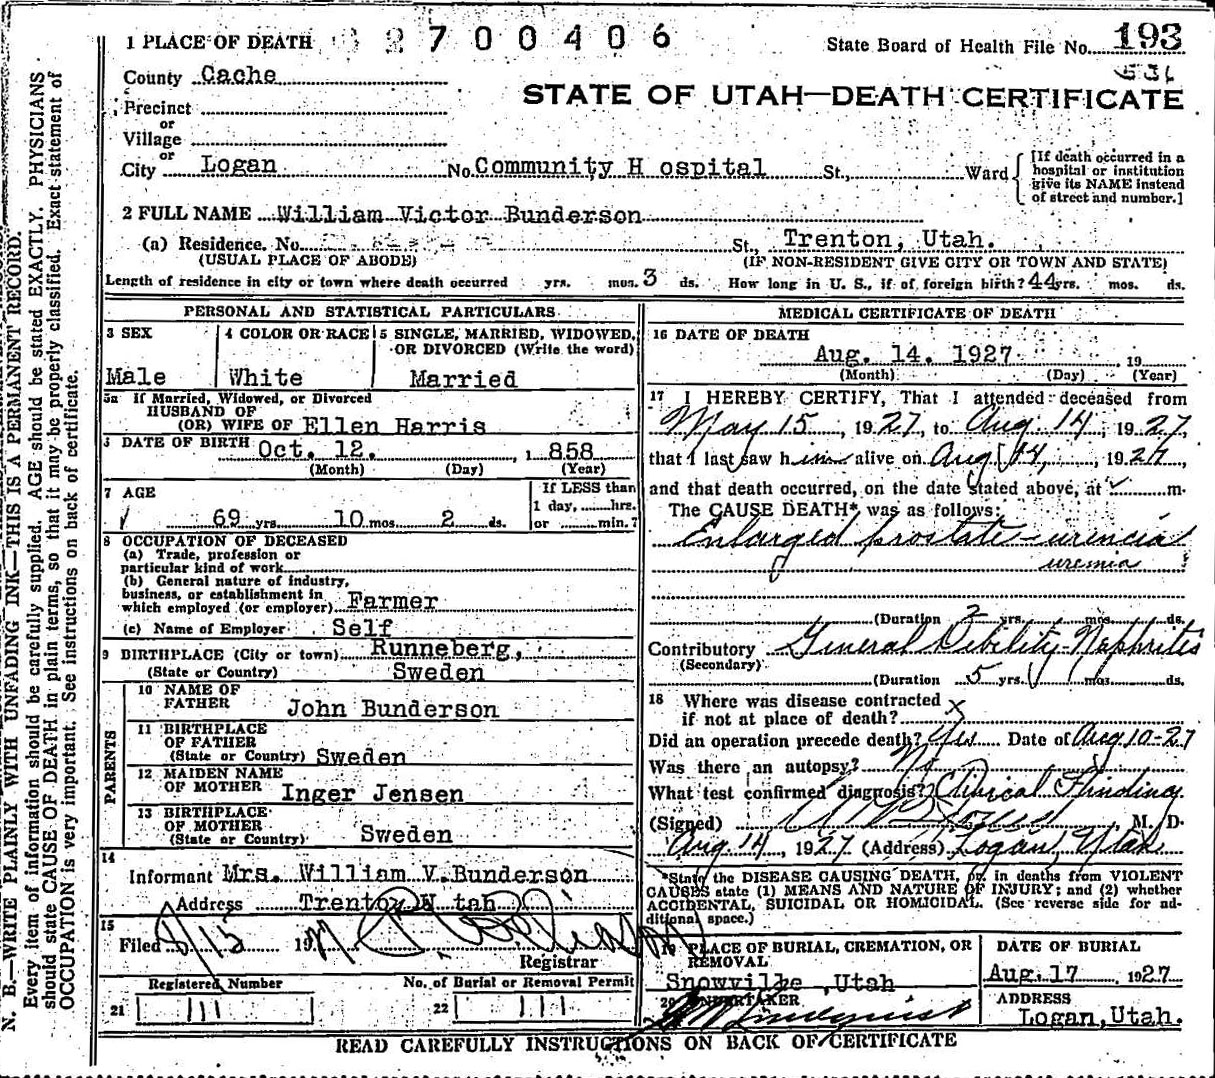 1 PLACE OF DEATH 2700406
State Board of Health File No. 193
County Cache
STATE OF UTAH—DEATH CERTIFICATE
Precinct
or
Village
or
City Logan No. Community H ospital St., Ward [If death occurred in a hospital or institution give its NAME instead of street and number.]
2 FULL NAME William Victor Bunderson
(a) Residence. No. St., Trenton, Utah.
(USUAL PLACE OF ABODE) (IF NON-RESIDENT GIVE CITY OR TOWN AND STATE)
Length of residence in city or town where death occurred yrs. mos. 3 ds. How long in U. S., if of foreign birth? 44 yrs. mos. ds.
PERSONAL AND STATISTICAL PARTICULARS
3 SEX 4 COLOR OR RACE 5 SINGLE, MARRIED, WIDOWED, OR DIVORCED (Write the word)
Male White Married
5a If Married, Widowed, or Divorced
HUSBAND OF
(OR) WIFE OF Ellen Harris
DATE OF BIRTH Oct. 12. , 1 858
(Month) (Day) (Year)
7 AGE If LESS than
1 day, hrs.
69 yrs. 10 mos. 2 ds. or min.?
8 OCCUPATION OF DECEASED
(a) Trade, profession or
particular kind of work
(b) General nature of industry,
business, or establishment in
which employed (or employer) Farmer
(c) Name of Employer Self
9 BIRTHPLACE (City or town) Runneberg,
(State or Country) Sweden
PARENTS
10 NAME OF
FATHER John Bunderson
11 BIRTHPLACE
OF FATHER
(State or Country) Sweden
12 MAIDEN NAME
OF MOTHER Inger Jensen
13 BIRTHPLACE
OF MOTHER
(State or Country) Sweden
14
Informant Mrs. William V. Bunderson
Address Trenton U tah
15
Filed 8/15 1927
Registrar
Registered Number No. of Burial or Removal Permit
21 111 22 111
MEDICAL CERTIFICATE OF DEATH
16 DATE OF DEATH
Aug. 14. 1927 19
(Month) (Day) (Year)
17 I HEREBY CERTIFY, That I attended deceased from
May 15, 1927, to Aug. 14, 1927,
that I last saw him alive on Aug 14, 1927,
and that death occurred, on the date stated above, at m.
The CAUSE DEATH* was as follows:
Enlarged prostate - urencia
uremia
(Duration 2 yrs. mos. ds.
Contributory General Debility - Nephritis
(Secondary)
(Duration 5 yrs. mos. ds.
18 Where was disease contracted
if not at place of death? x
Did an operation precede death? Yes Date of Aug 10-27
Was there an autopsy? No
What test confirmed diagnosis? Clinical Finding
(Signed) M. D.
Aug 14, 1927 (Address) Logan, Utah
*State the DISEASE CAUSING DEATH, or, in deaths from VIOLENT
CAUSES state (1) MEANS AND NATURE OF INJURY; and (2) whether
ACCIDENTAL, SUICIDAL OR HOMICIDAL. (See reverse side for ad-
ditional space.)
19 PLACE OF BURIAL, CREMATION, OR REMOVAL DATE OF BURIAL
Snowville ,Utah Aug. 17 1927
20 UNDERTAKER ADDRESS
Lindquist Logan, Utah.
READ CAREFULLY INSTRUCTIONS ON BACK OF CERTIFICATE
N. B.—WRITE PLAINLY WITH UNFADING INK—THIS IS A PERMANENT RECORD.
Every item of information should be carefully supplied. AGE should be stated EXACTLY. PHYSICIANS
should state CAUSE OF DEATH in plain terms, so that it may be properly classified. Exact statement of
OCCUPATION is very important. See instructions on back of certificate.